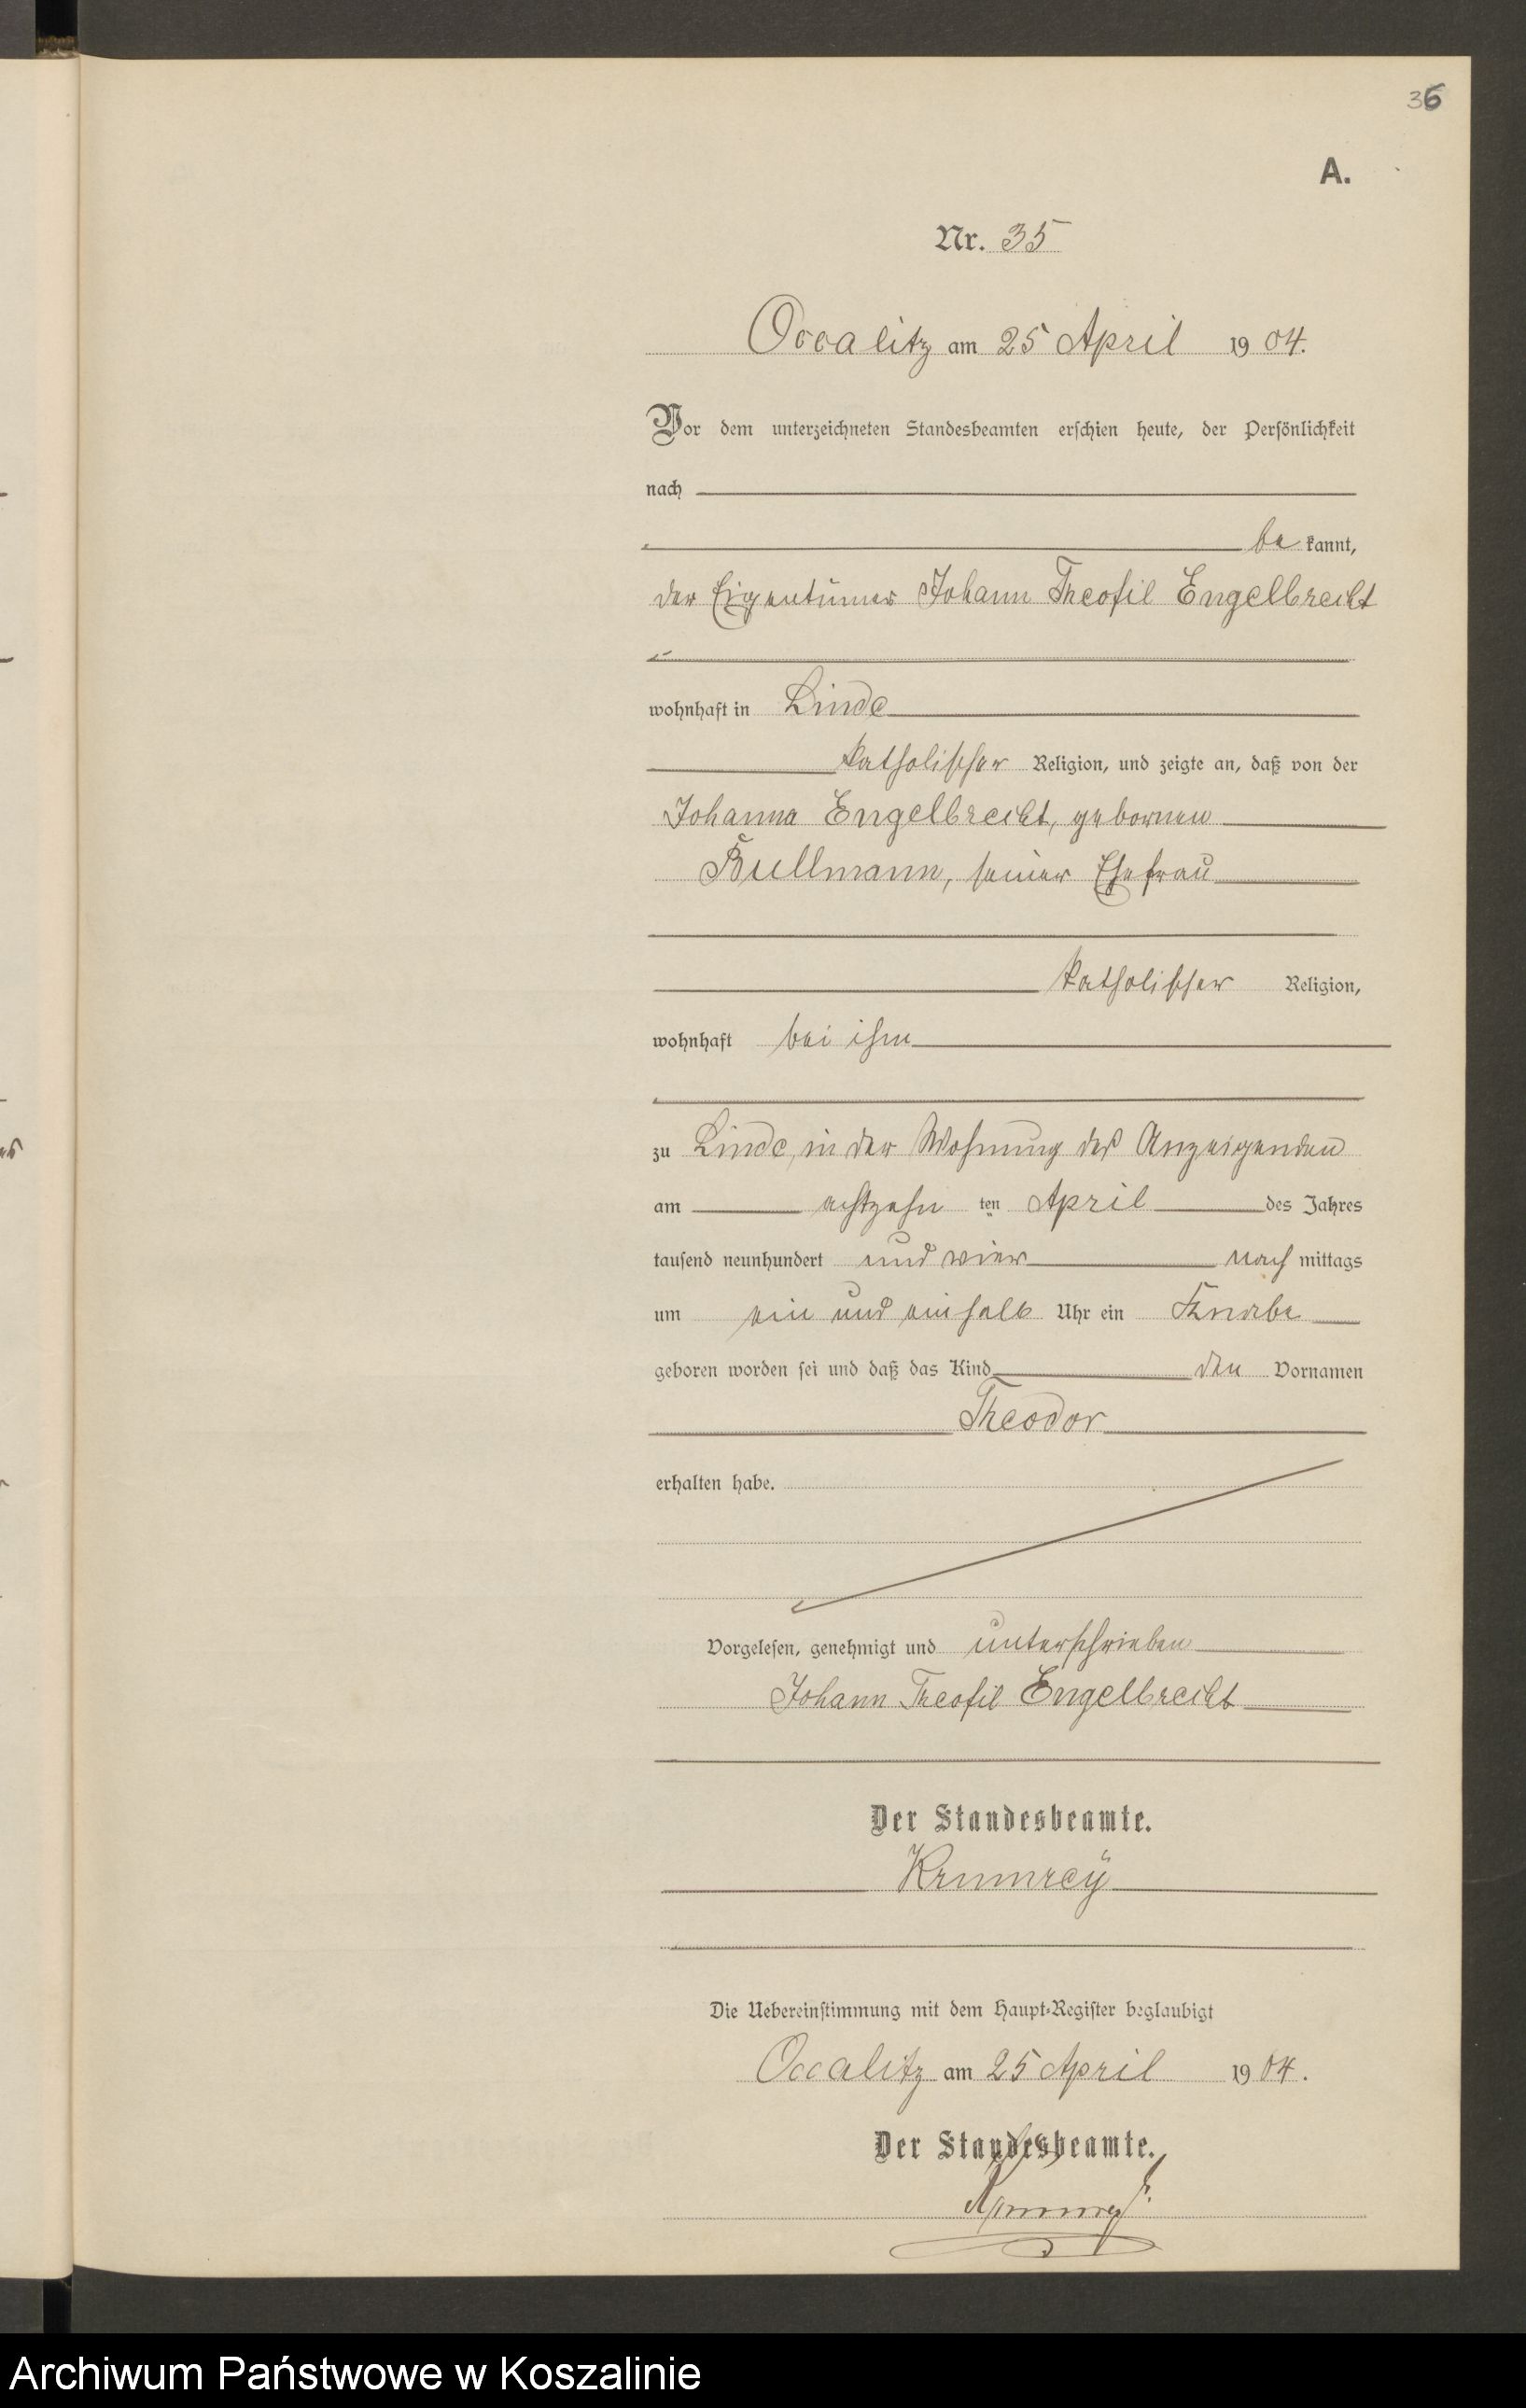 36
A.
Nr. 35
Occalitz am 25 April 1904.
Vor dem unterzeichneten Standesbeamten erschien heute, der Persönlichkeit
nach
be kannt,
der Eigentümer Johann Theofil Engelbrecht
wohnhaft in Linde
katholischer Religion, und zeigte an, daß von der
Johanna Engelbrecht, gebornen
Bullmann, seiner Ehefrau
katholischer Religion,
wohnhaft bei ihm
zu Linde, in der Wohnung des Anzeigenden
am achtzehn ten April des Jahres
tausend neunhundert und vier nach mittags
um ein und einhalb Uhr ein Knabe
geboren worden sei und daß das Kind den Vornamen
Theodor
erhalten habe.
Vorgelesen, genehmigt und unterschrieben
Johann Theofil Engelbrecht
Der Standesbeamte.
Krumrey
Die Uebereinstimmung mit dem Haupt-Register beglaubigt
Occalitz am 25 April 1904.
Der Standesbeamte.
Krumrey
Archiwum Państwowe w Koszalinie